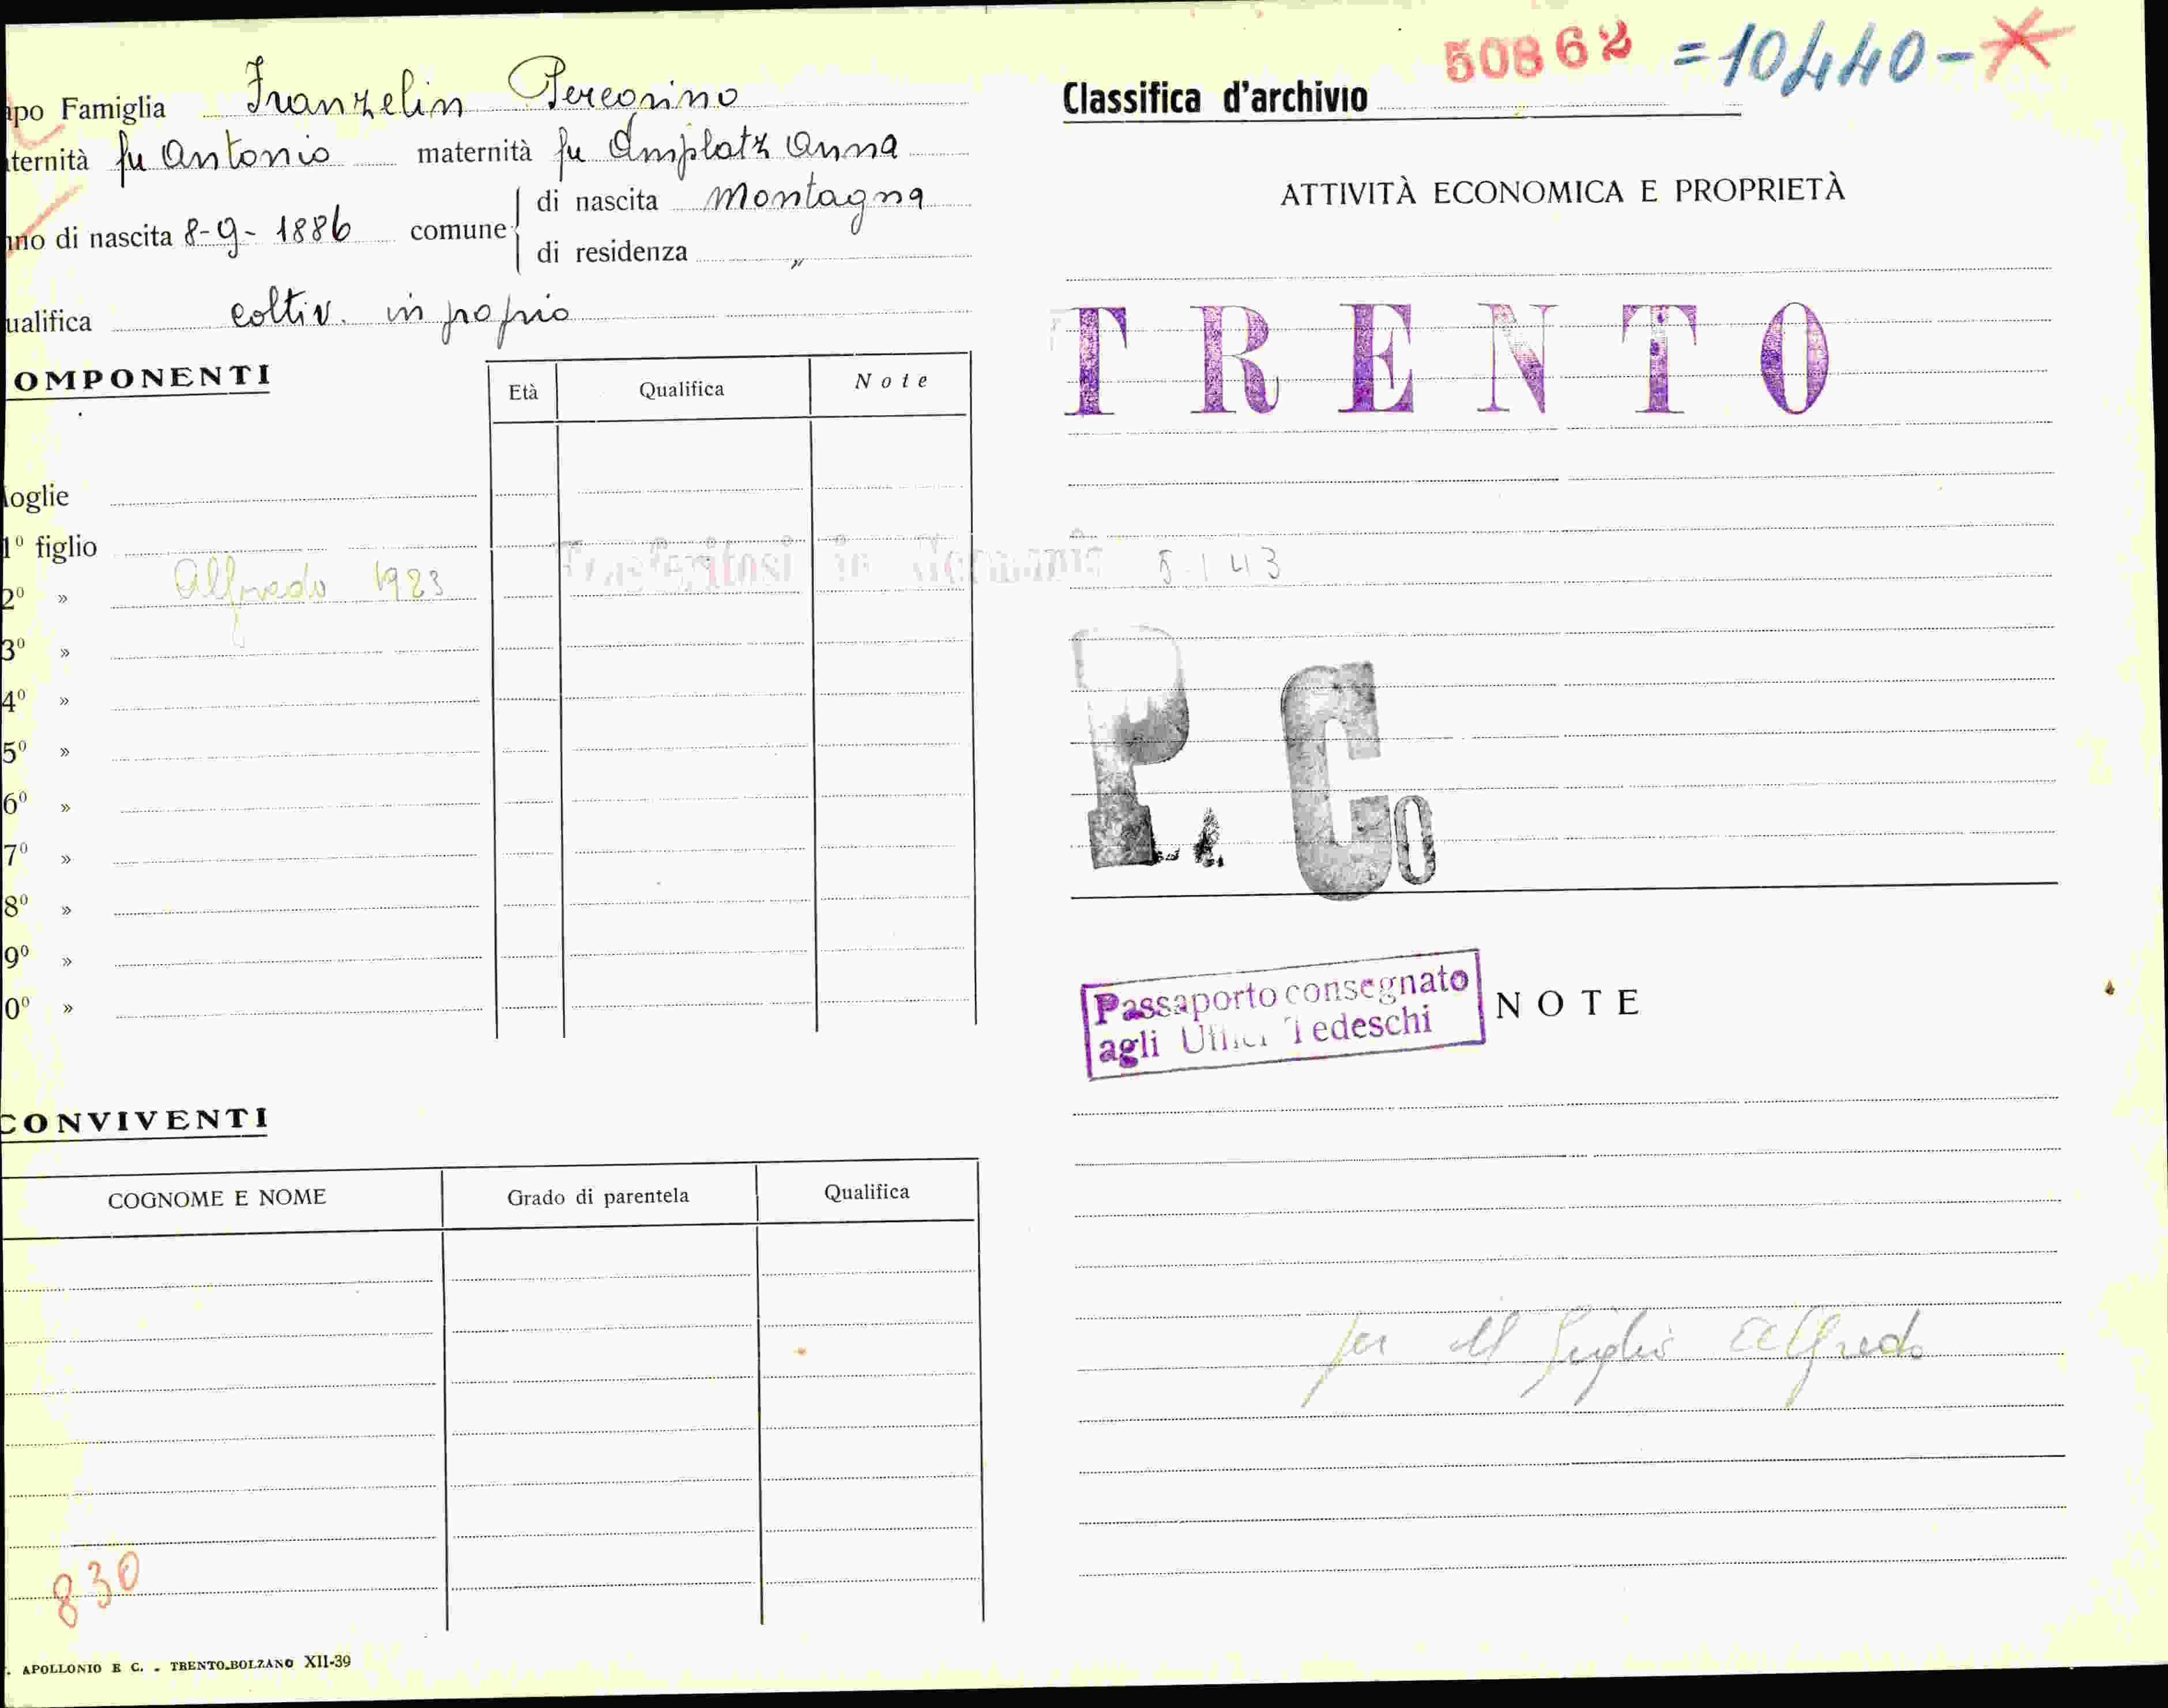 50862 =10440-
apo Famiglia Franzelin Peregrino
ternità fu Antonio maternità fu Amplatz Anna
nno di nascita 8-9-1886 comune di nascita Montagna
di residenza "
ualifica coltiv. in proprio
OMPONENTI
Età Qualifica Note
oglie
1º figlio
2º » Alfredo 1923
3º »
4º »
5º »
6º »
7º »
8º »
9º »
0º »
CONVIVENTI
COGNOME E NOME Grado di parentela Qualifica
830
. APOLLONIO E C. - TRENTO-BOLZANO XII-39
Classifica d'archivio
ATTIVITÀ ECONOMICA E PROPRIETÀ
TRENTO
Trasferitosi in Germania 5-1 43
P. Co
Passaporto consegnato
agli Uffici Tedeschi
NOTE
per il figlio Alfredo